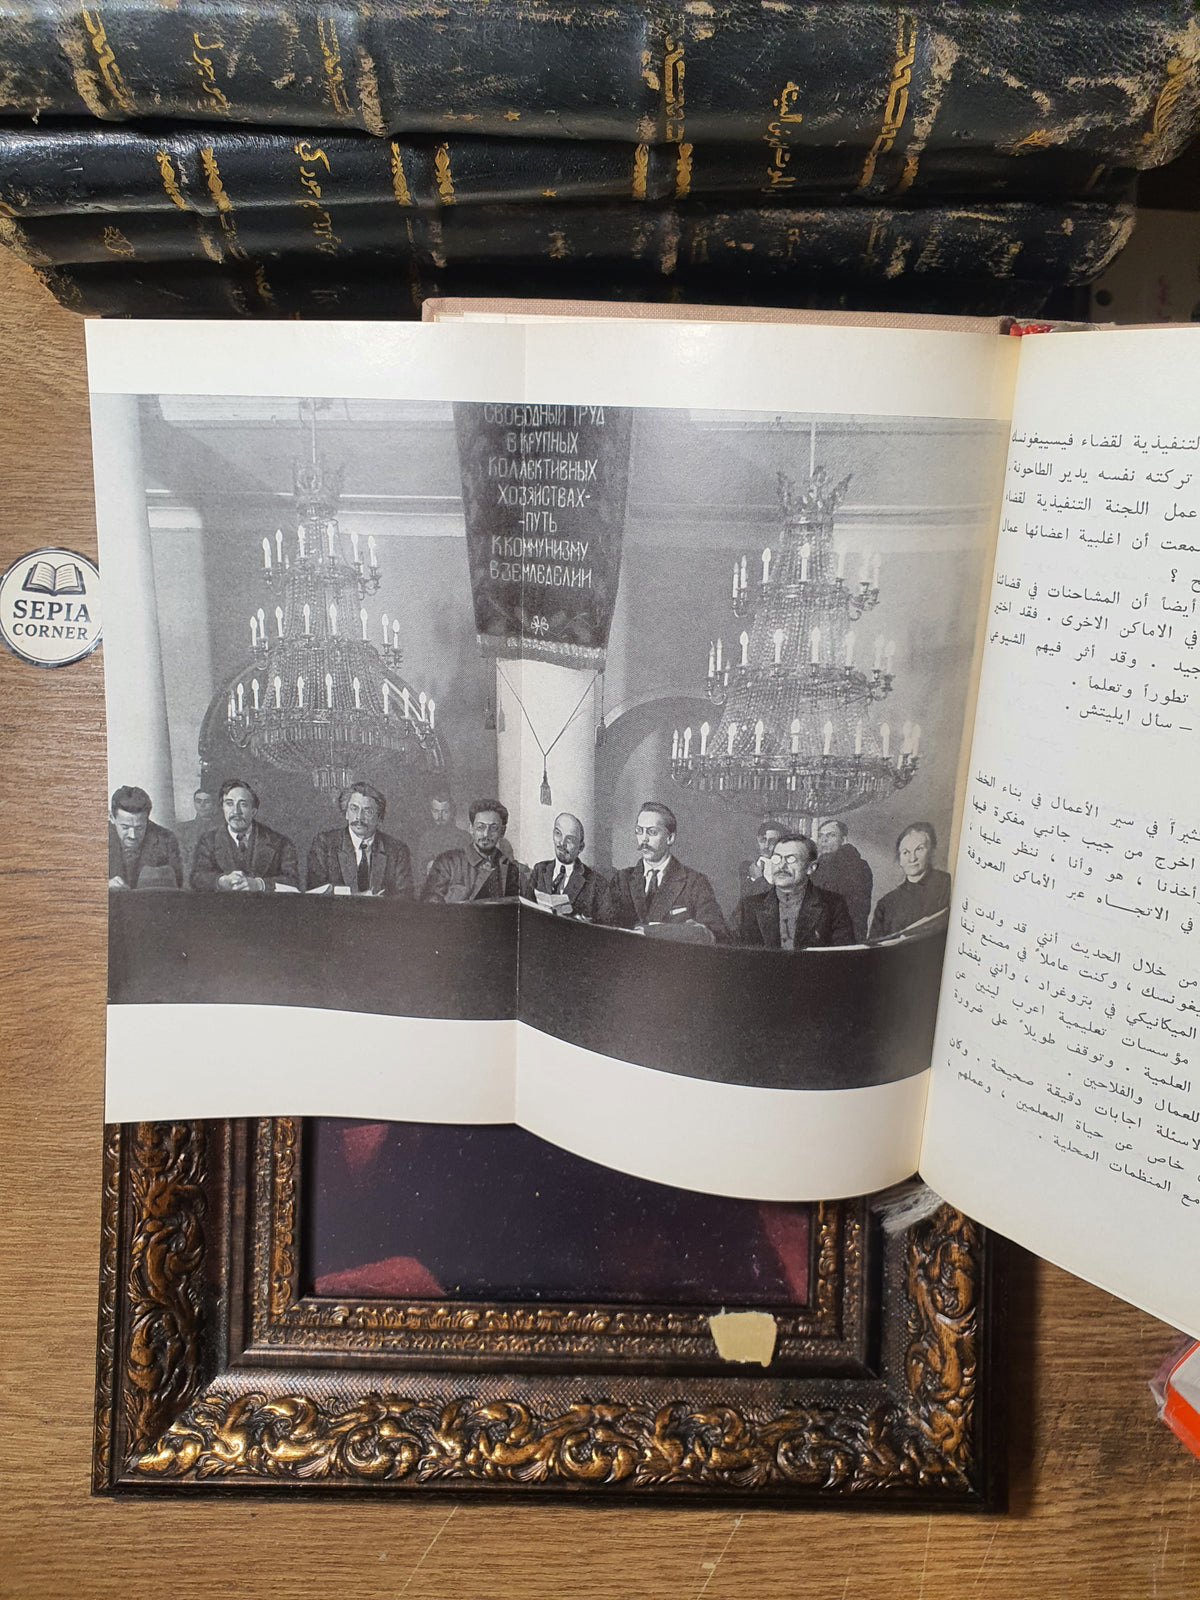 СВОБОДНЫЙ ТРУД
В КРУПНЫХ
КОЛЛЕКТИВНЫХ
ХОЗЯЙСТВАХ-
-ПУТЬ
К КОММУНИЗМУ
В ЗЕМЛЕДЕЛИИ
SEPIA
CORNER
لتنفيذية لقضاء فيسييفونسك
تركته نفسه يدير الطاحونة .
عمل اللجنة التنفيذية لقضاء
سمعت أن اغلبية اعضائها عمال
ح ؟
أيضاً أن المشاحنات في قضائنا
في الاماكن الاخرى . فقد اختير
جيد . وقد أثر فيهم الشيوعي
تطوراً وتعلماً .
ــ سأل ايليتش .
ثيراً في سير الأعمال في بناء الخط
إخرج من جيب جانبي مفكرة فيها
أخذنا ، هو وأنا ، ننظر عليها ،
في الاتجـاه عبر الأماكن المعروفة
من خلال الحديث أنني قد ولدت في
يغونسك ، وكنت عاملاً في مصنع نيفا
الميكانيكي في بتروغراد ، وأنني بفضل
مؤسسات تعليمية اعرب لينين عن
العلمية . وتوقف طويلاً على ضرورة
للعمال والفلاحين .
لاسئلة اجابات دقيقة صحيحة . وكان
خاص عن حياة المعلمين ، وعملهم ،
مع المنظمات المحلية .